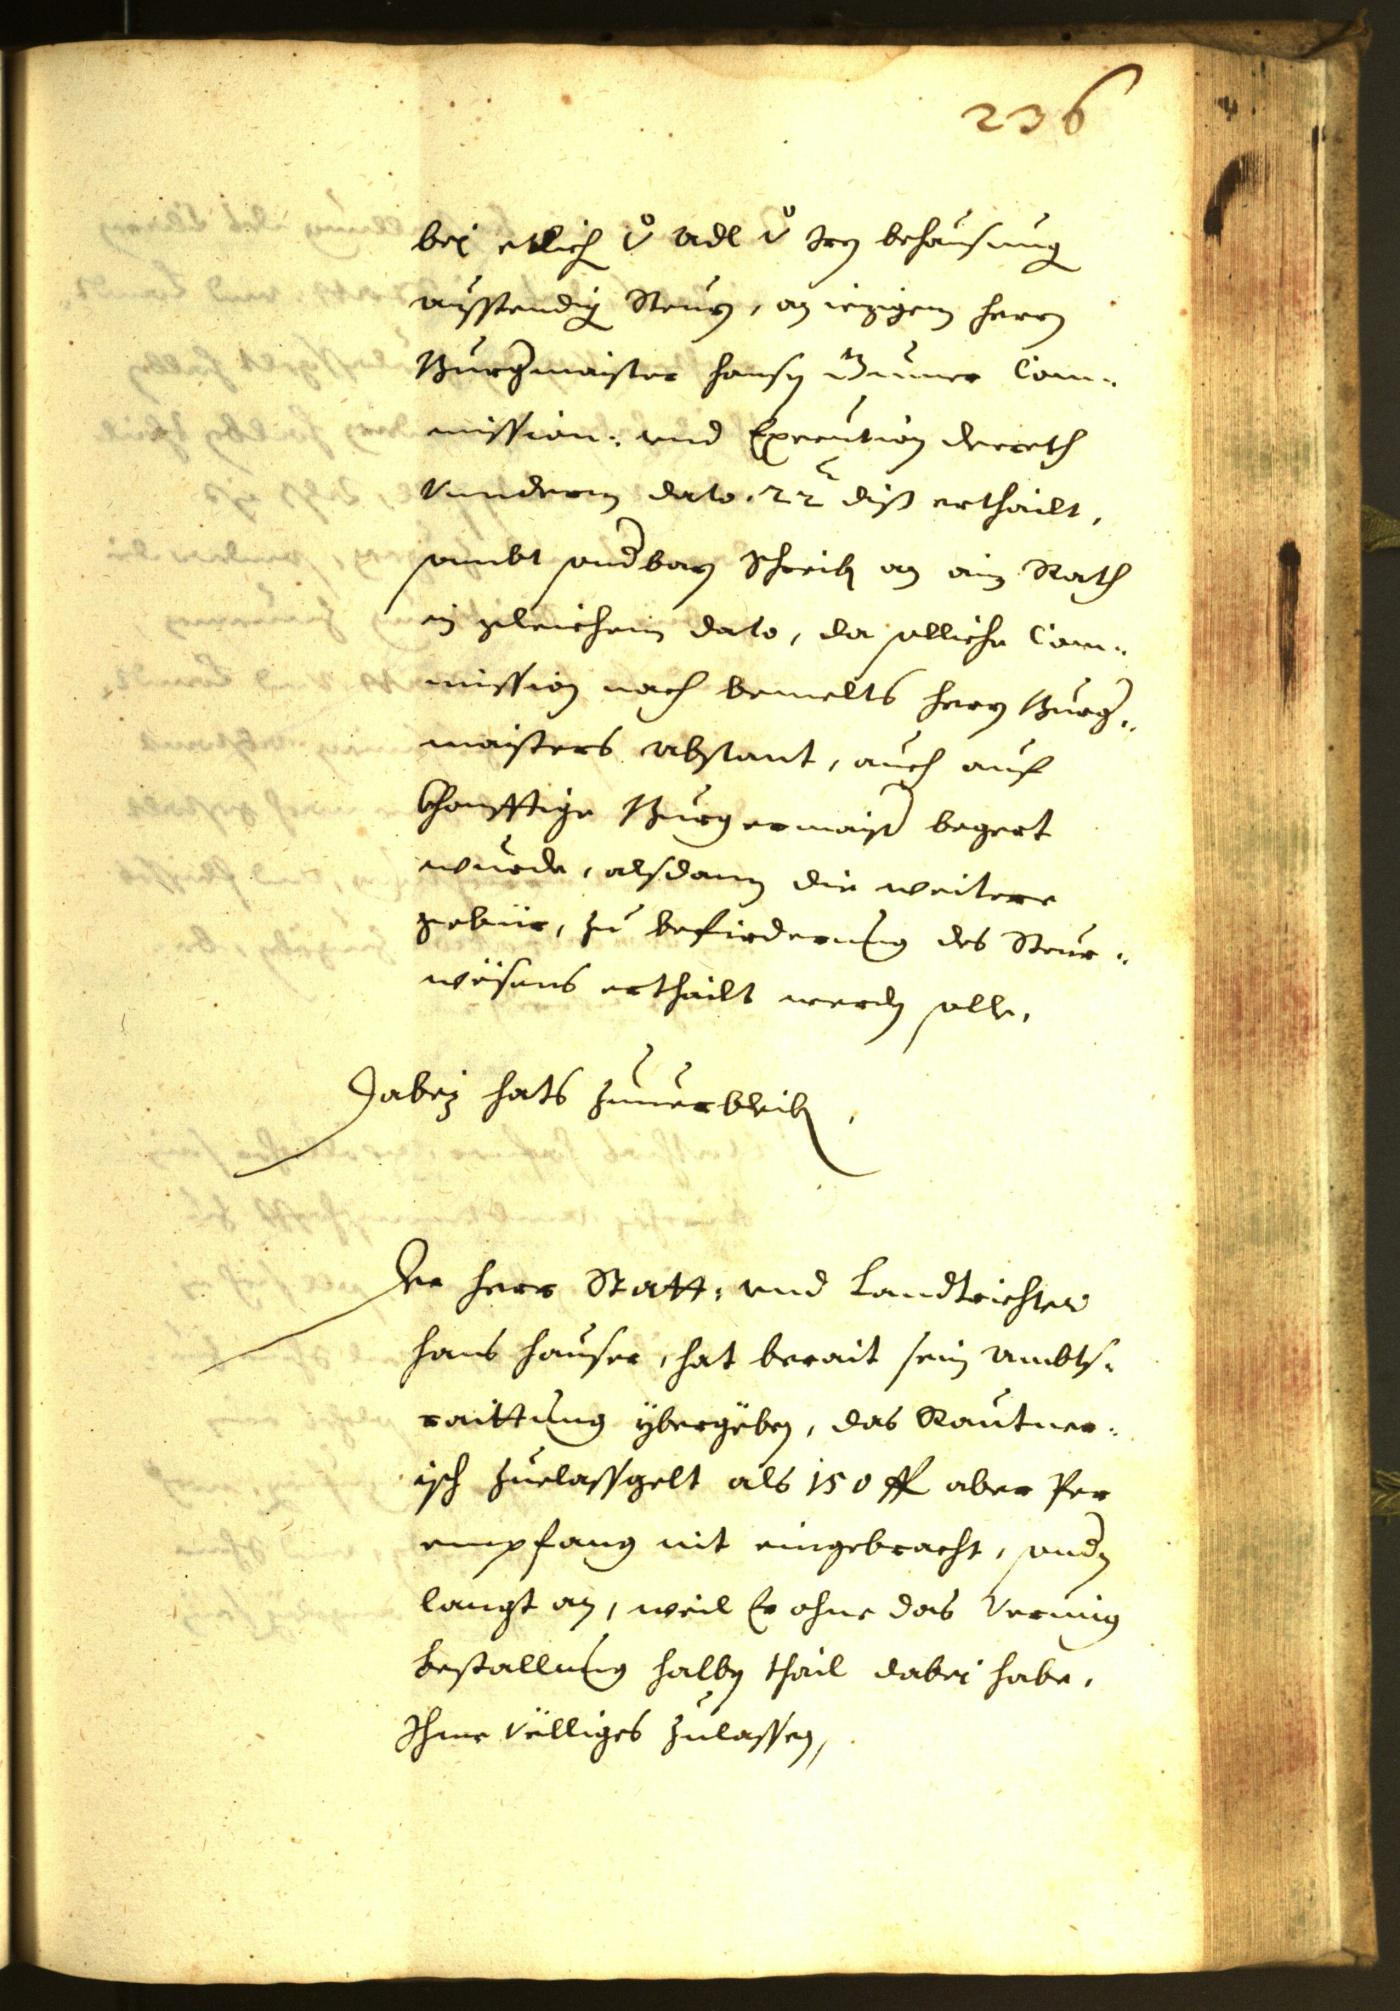 236
bei etlich v̊ Adl v̊ Irn behausung
ausstendig Steur, an iezigem herrn
Burgermaister hansn Com¬
mission: vnd Execution decreth
Vnnderm dato 22 diß erthailt,
sambt sondbarn Schreibn an ain Rath
in gleichem dato, da solliche Com¬
mission nach bemelts herrn Burger¬
maisters abstant, auch auf
khonfftige Burgermaister begert
wurde, alsdann die weitere
gebür, zu befirderung des Steur¬
wësens erthailt werdn solle,
Dabej hats zuuerbleibn,
Der herr Statt: vnd Landtrichter
hans hauser, hat berait sein Ambts¬
raittung ÿbergëben, das Rautner¬
isch Zuelassgelt als 150 fl aber Per
empfang nit eingebracht, sondn
langt an, weil Er ohne das Vermig
bestallung halbn thail dabei habe,
Ihme völliges zulassen,